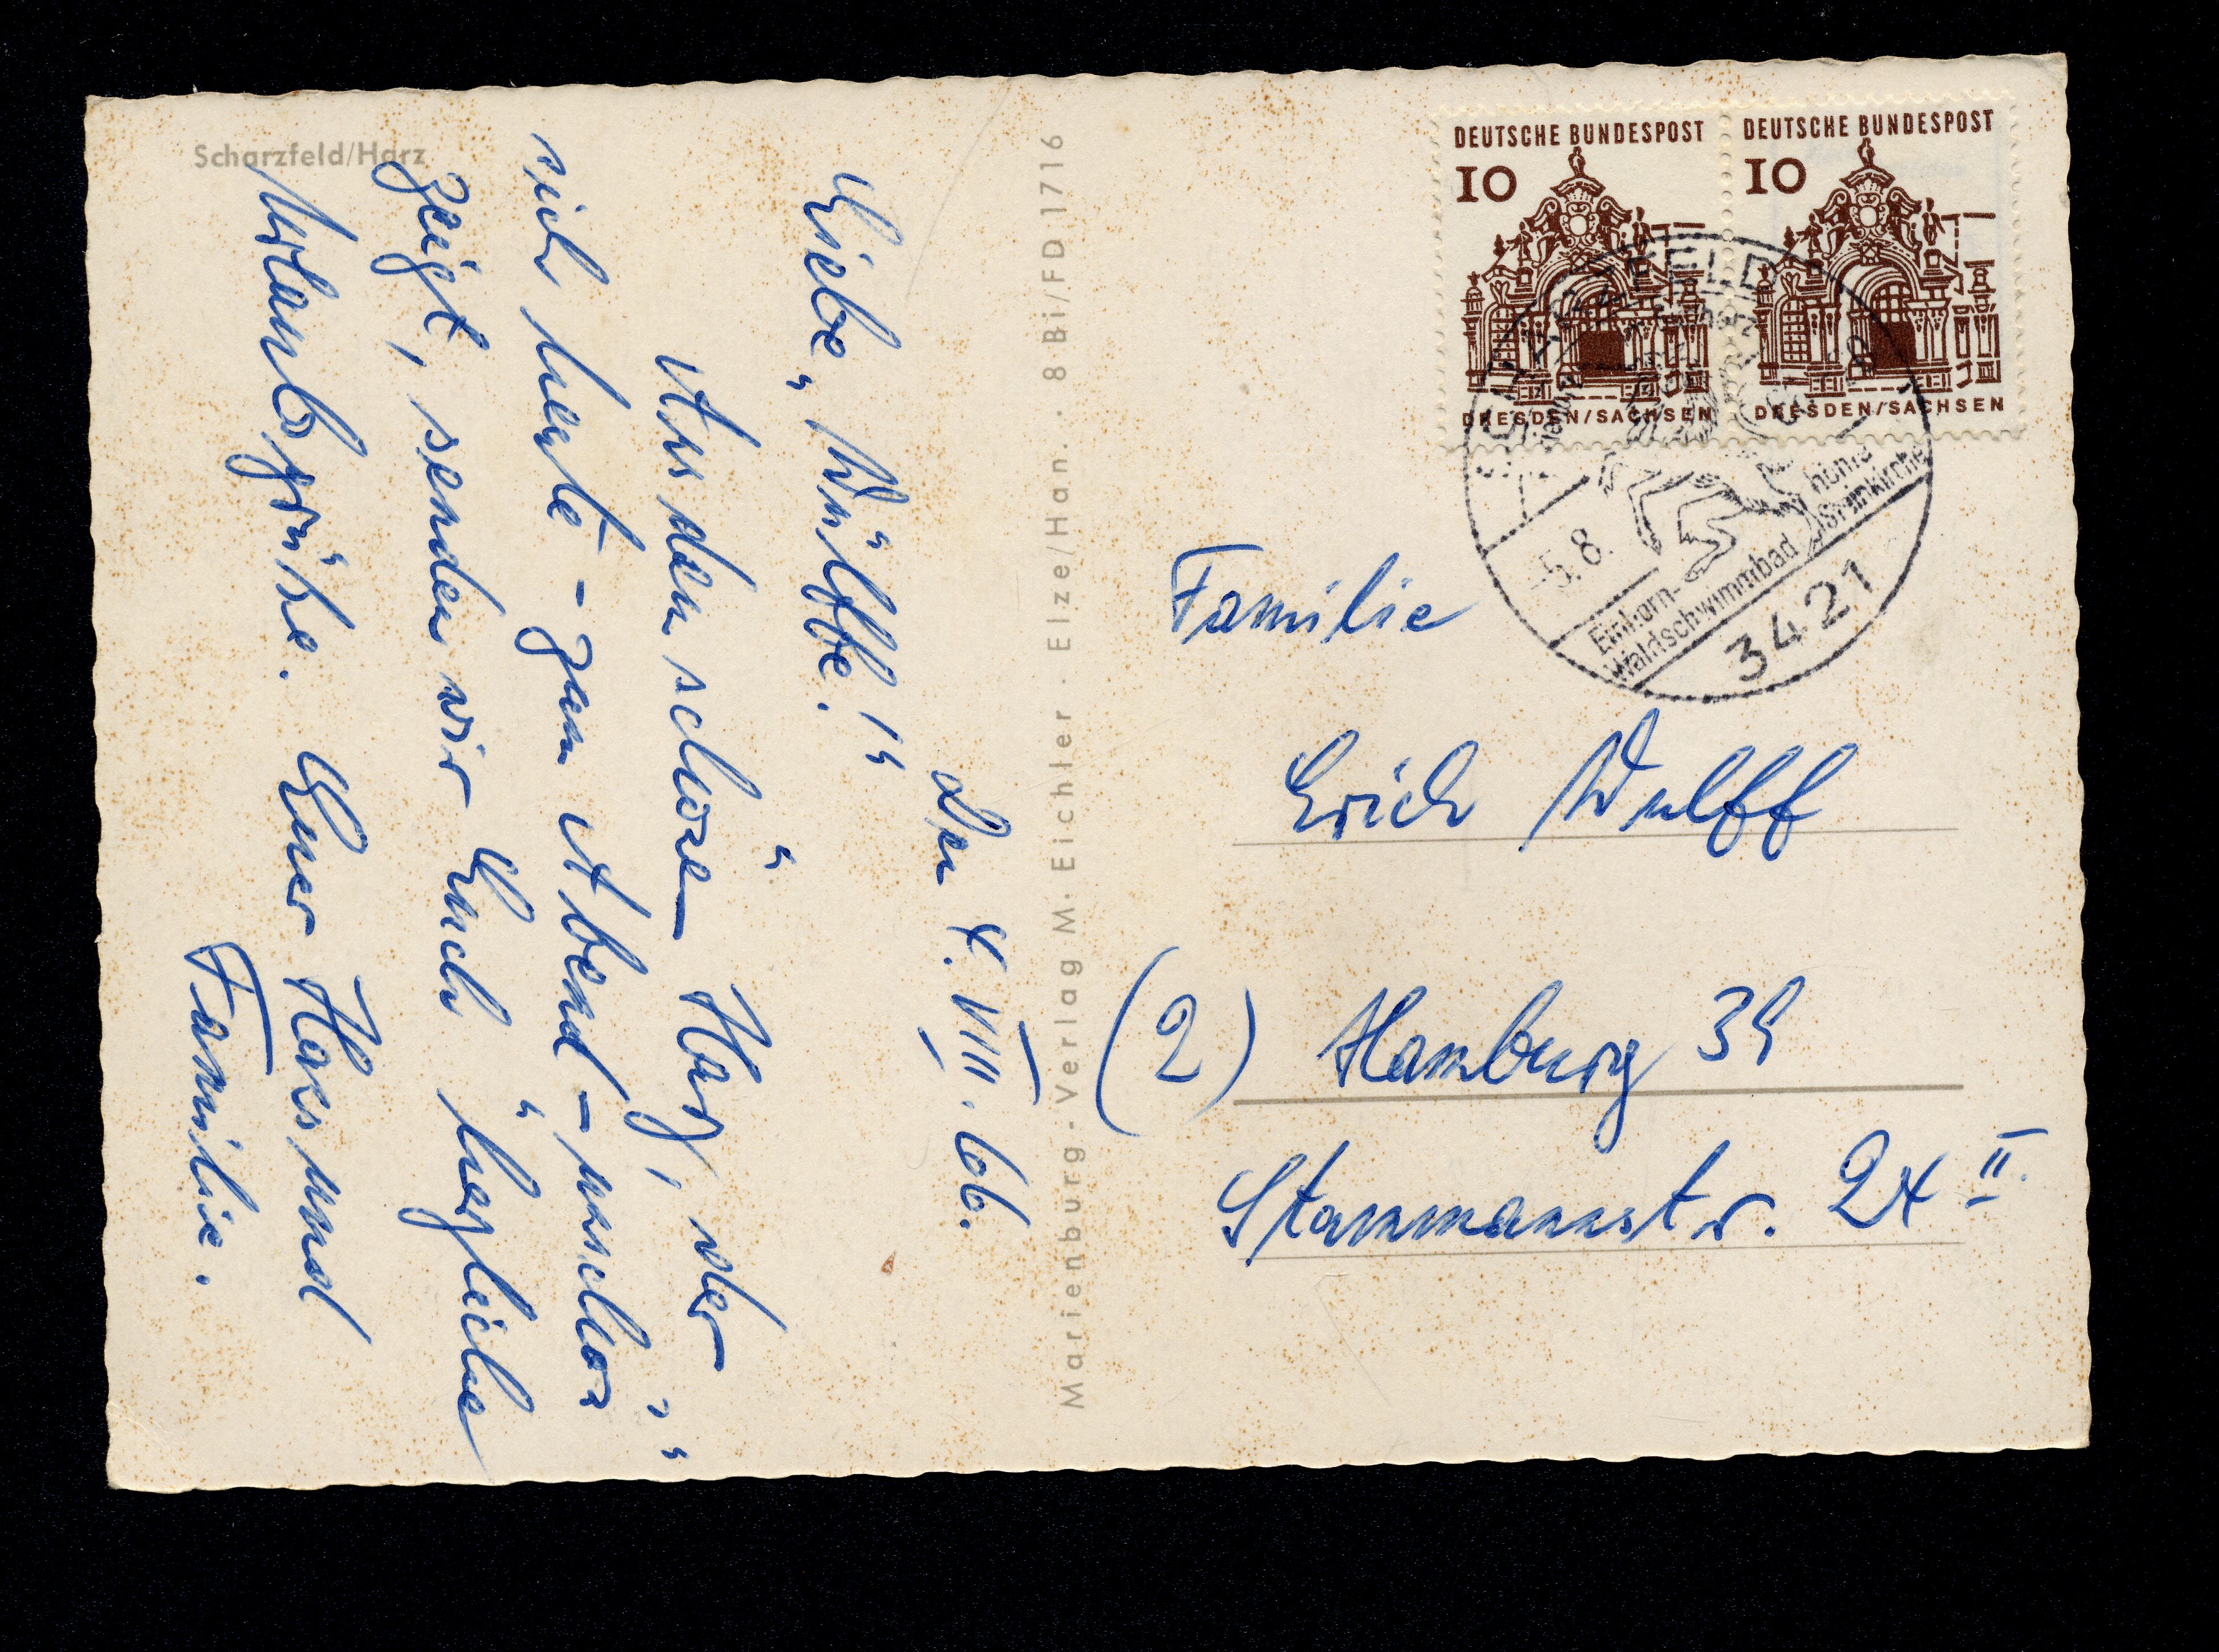 Scharzfeld/Harz
den 4. VIII. 66.
Liebe „Wülffe!“
Aus dem schönen Harz, der
sich heute - zum Abend - „schön“
zeigt, senden wir Euch herzliche
Urlaubsgrüße. Euer Hans und
Familie.
Marienburg-Verlag M. Eichler · Elze/Han. · 8 Bi/FD 1716
DEUTSCHE BUNDESPOST
10
DRESDEN/SACHSEN
DEUTSCHE BUNDESPOST
10
DRESDEN/SACHSEN
SCHARZFELD
-5.8.
Einhorn-
Waldschwimmbad
Steinkirche
3421
Familie
Erich Wulff
(2) Hamburg 39
Stammannstr. 24 II.